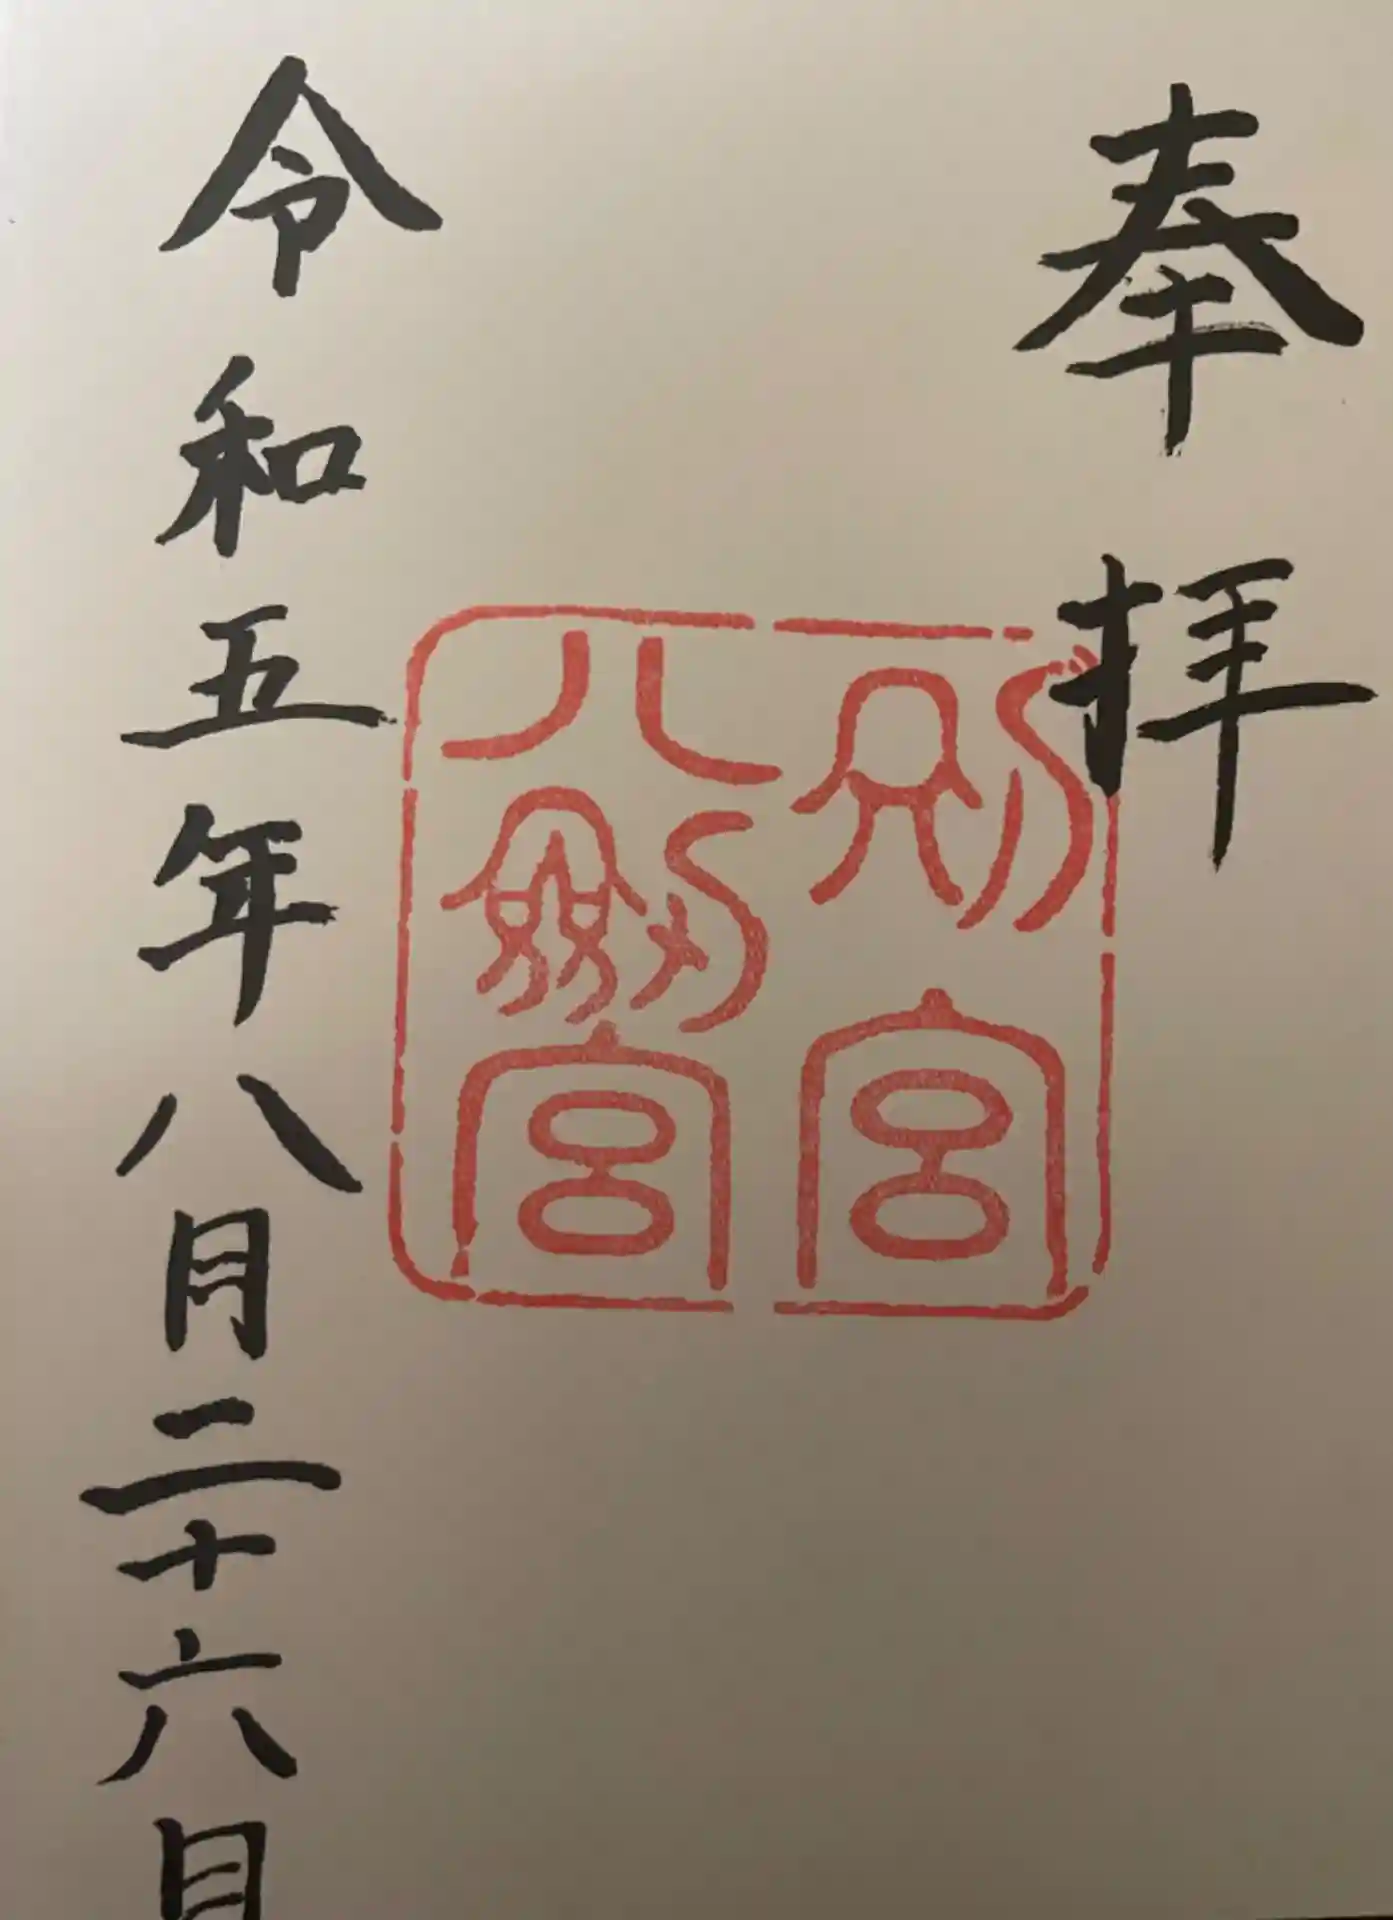 奉拝
別宮
八劔宮
令和五年八月二十六日